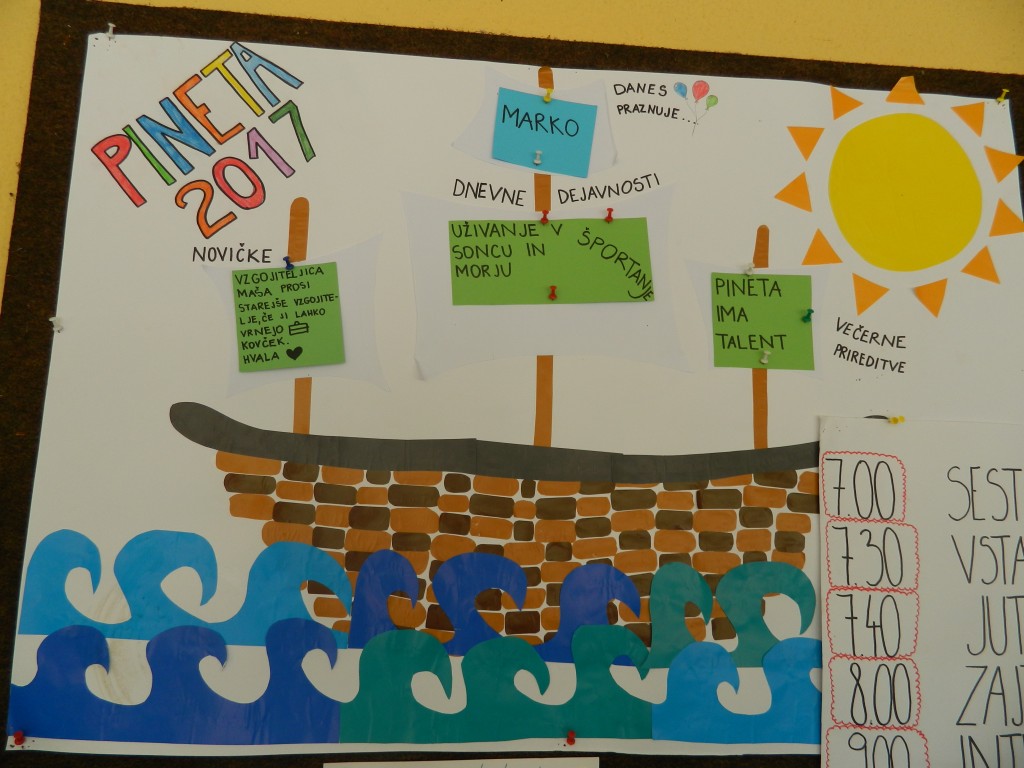 PINETA
2017
DANES
PRAZNUJE...
MARKO
DNEVNE DEJAVNOSTI
UŽIVANJE V
SONCU IN
MORJU
ŠPORTANJE
NOVIČKE
VZGOJITELJICA
MAŠA PROSI
STAREJŠE VZGOJITE-
LJE, ČE JI LAHKO
VRNEJO
KOVČEK.
HVALA ♥
PINETA
IMA
TALENT
VEČERNE
PRIREDITVE
7.00 SEST
7.30 VSTA
7.40 JUT
8.00 ZAJ
9.00 INT